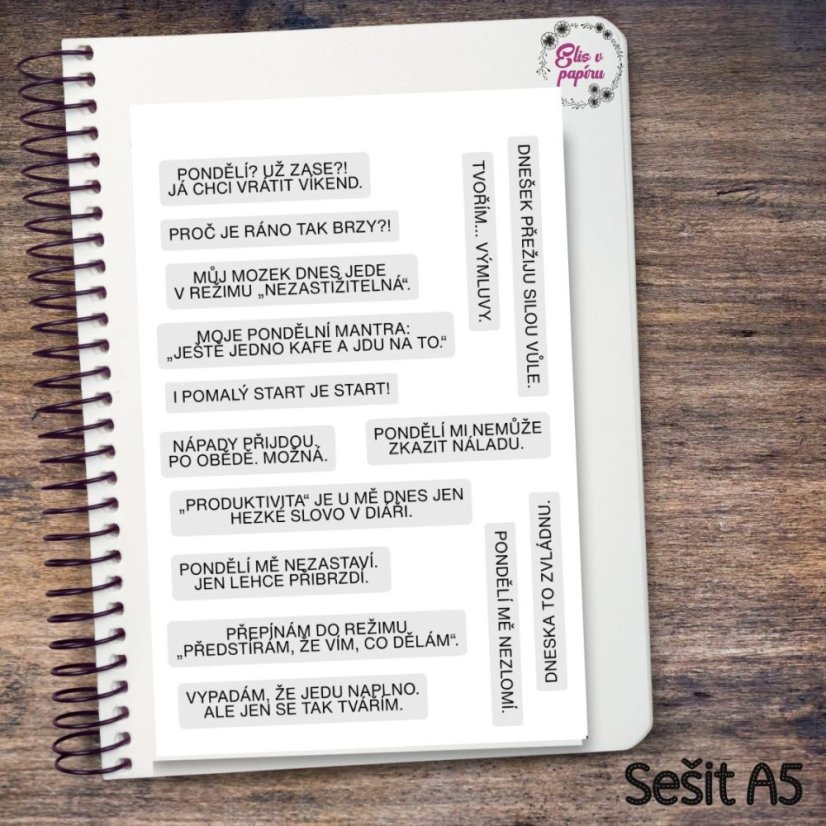 Elis v
papíru
PONDĚLÍ? UŽ ZASE?!
JÁ CHCI VRÁTIT VÍKEND.
PROČ JE RÁNO TAK BRZY?!
MŮJ MOZEK DNES JEDE
V REŽIMU „NEZASTIŽITELNÁ“.
MOJE PONDĚLNÍ MANTRA:
„JEŠTĚ JEDNO KAFE A JDU NA TO.“
I POMALÝ START JE START!
TVOŘÍM... VÝMLUVY.
DNEŠEK PŘEŽIJU SILOU VŮLE.
NÁPADY PŘIJDOU
PO OBĚDĚ. MOŽNÁ.
PONDĚLÍ MI NEMŮŽE
ZKAZIT NÁLADU.
„PRODUKTIVITA“ JE U MĚ DNES JEN
HEZKÉ SLOVO V DIÁŘI.
PONDĚLÍ MĚ NEZASTAVÍ.
JEN LEHCE PŘIBRZDÍ.
PŘEPÍNÁM DO REŽIMU
„PŘEDSTÍRÁM, ŽE VÍM, CO DĚLÁM“.
VYPADÁM, ŽE JEDU NAPLNO.
ALE JEN SE TAK TVÁŘÍM.
PONDĚLÍ MĚ NEZLOMÍ.
DNESKA TO ZVLÁDNU.
Sešit A5